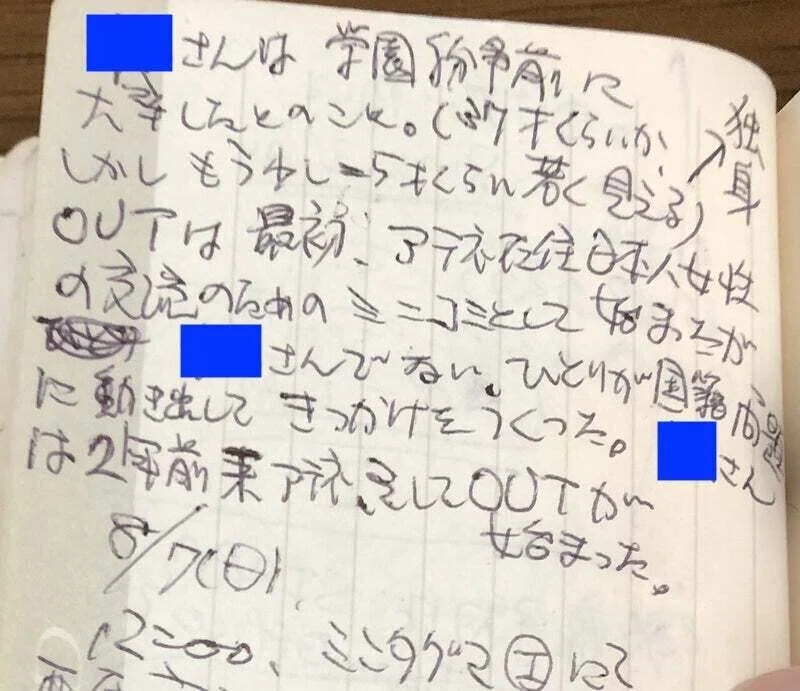 さんは 学園紛争前に
大卒したとのこと。(37才くらいか、
しかし もう少し 5才くらい 若く見える) 独身
OUTは 最初、アテネ在住日本人女性
の交流のための ミニコミとして 始まったが
さんでない、ひとりが国籍問題
に動き出して きっかけをつくった。 さん
は2年前来アテネ、そしてOUTが
始まった。
8/7(日)
12:00、シンタグマ にて